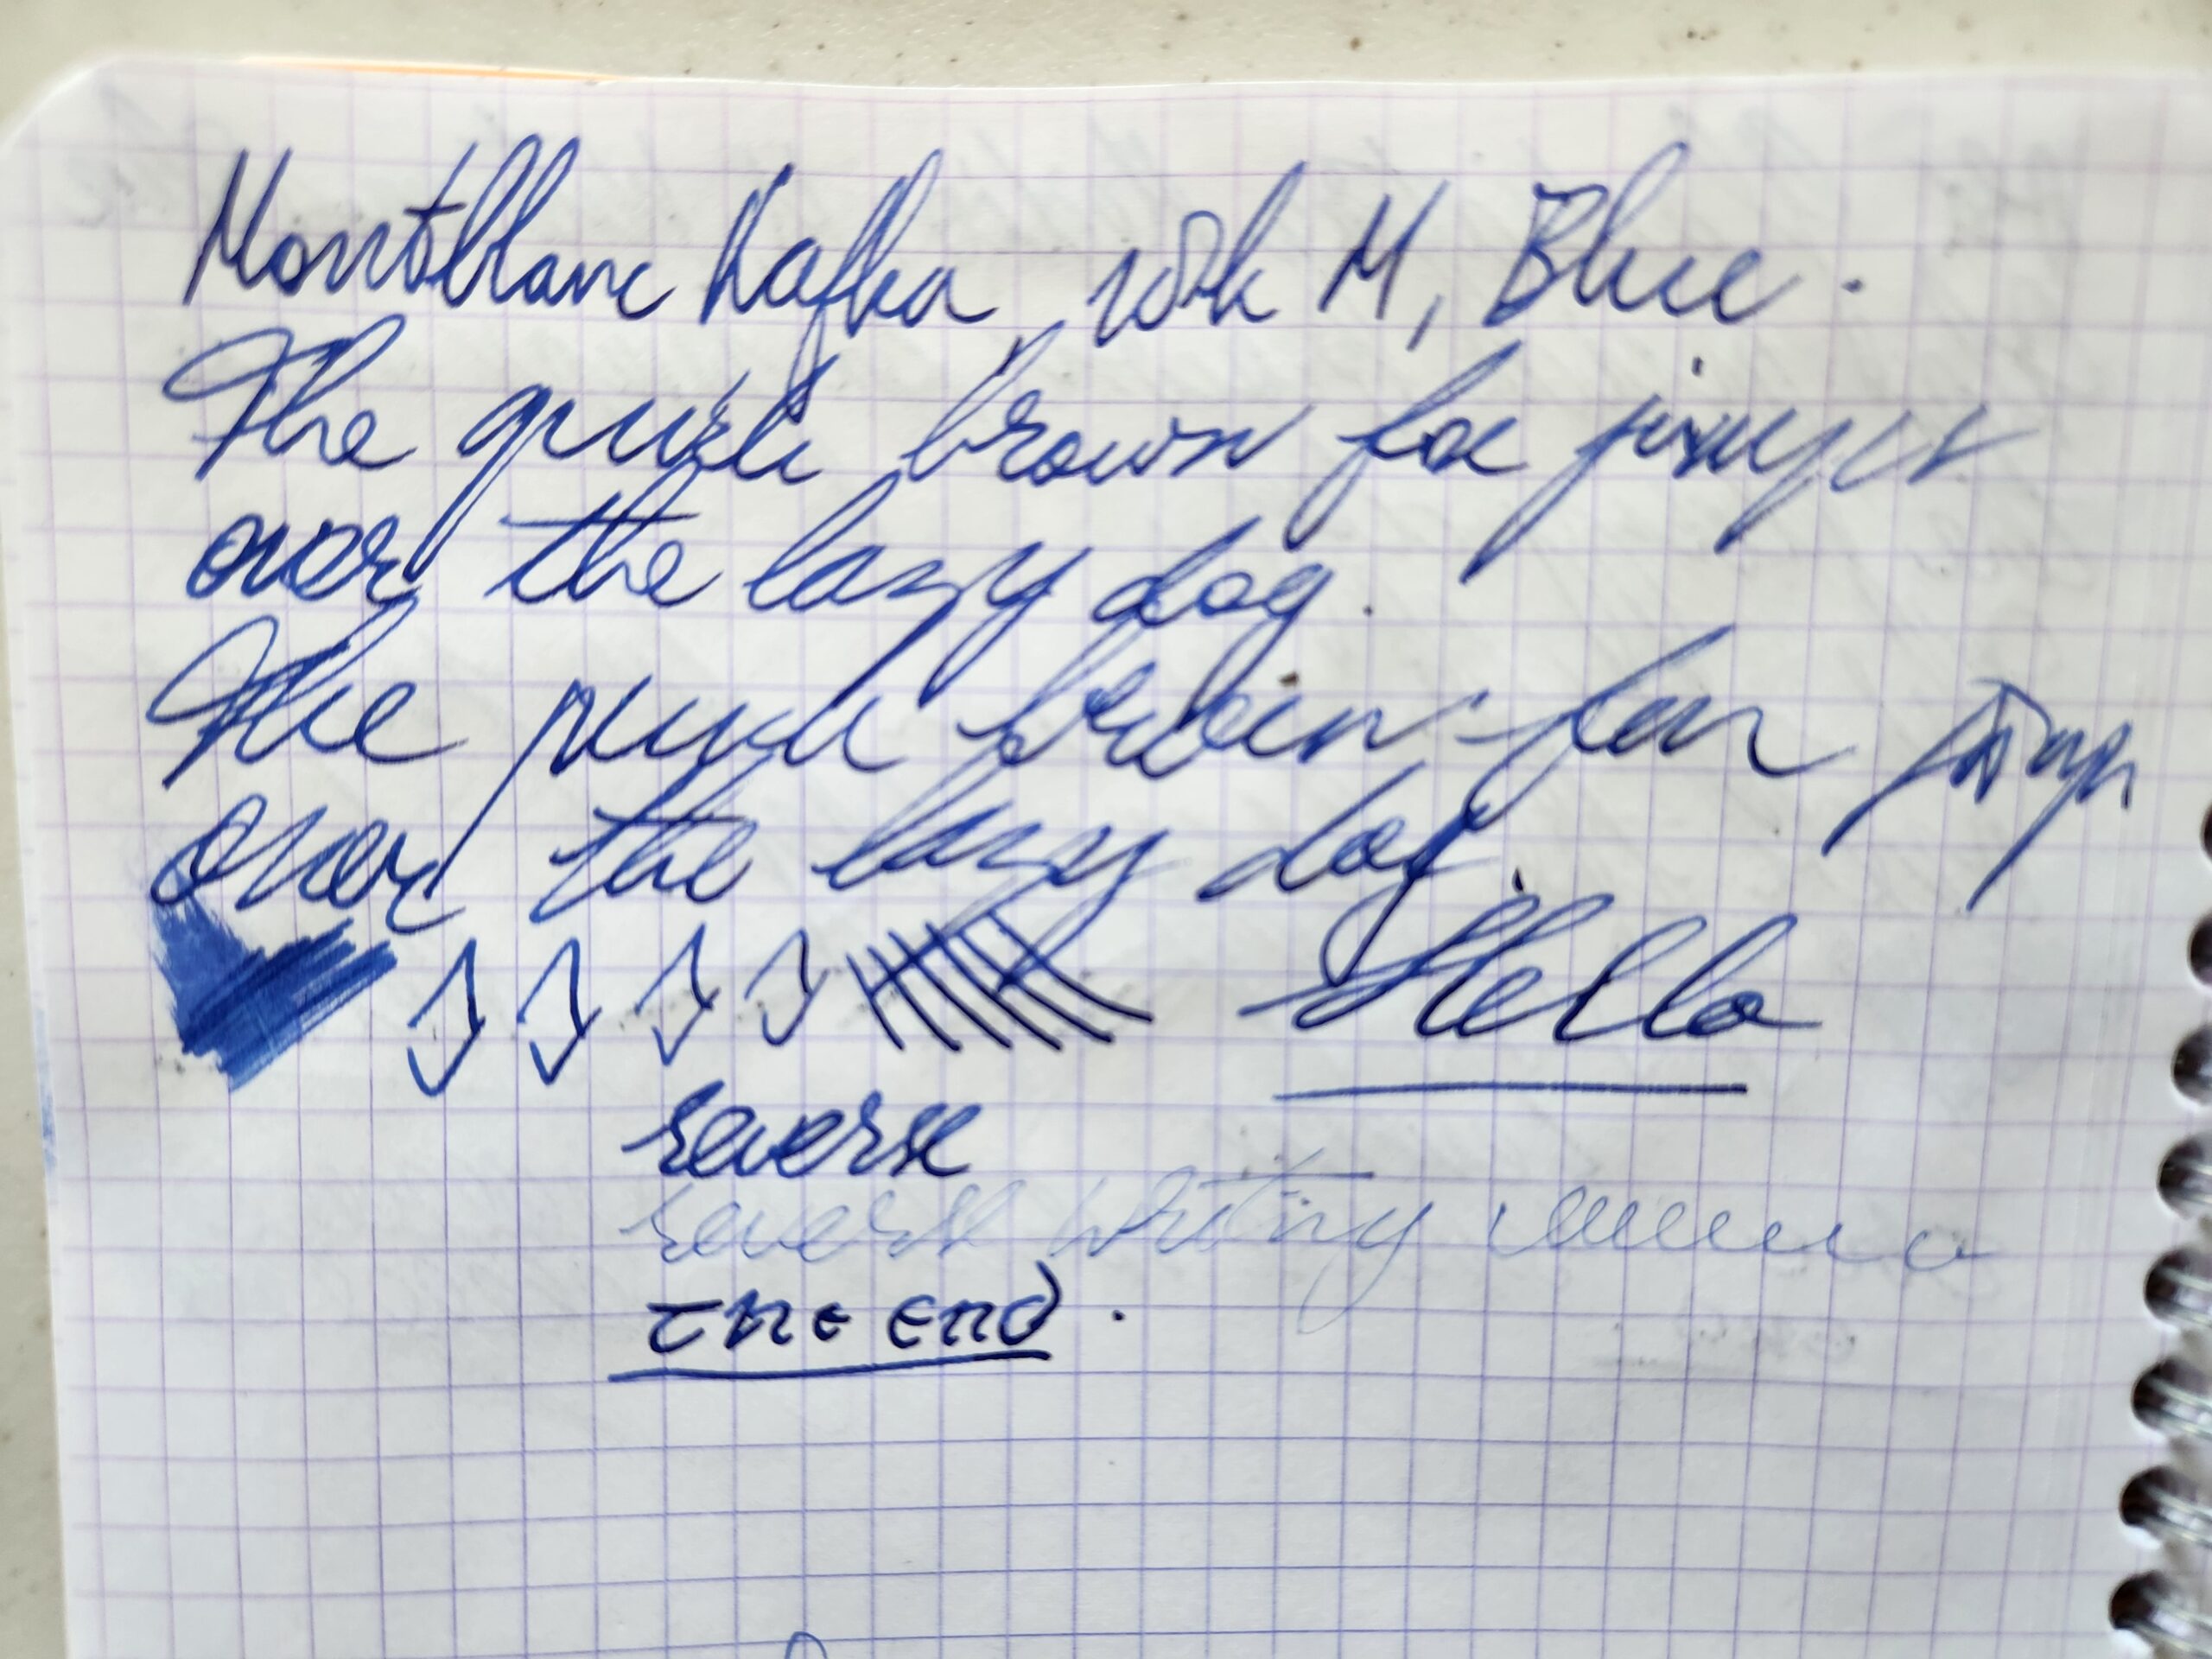 Montblanc Kafka, 18k M, Blue.
The quick brown fox jumps
over the lazy dog.
The quick brown fox jumps
over the lazy dog.
Hello
reverse
reverse writing
THE END.